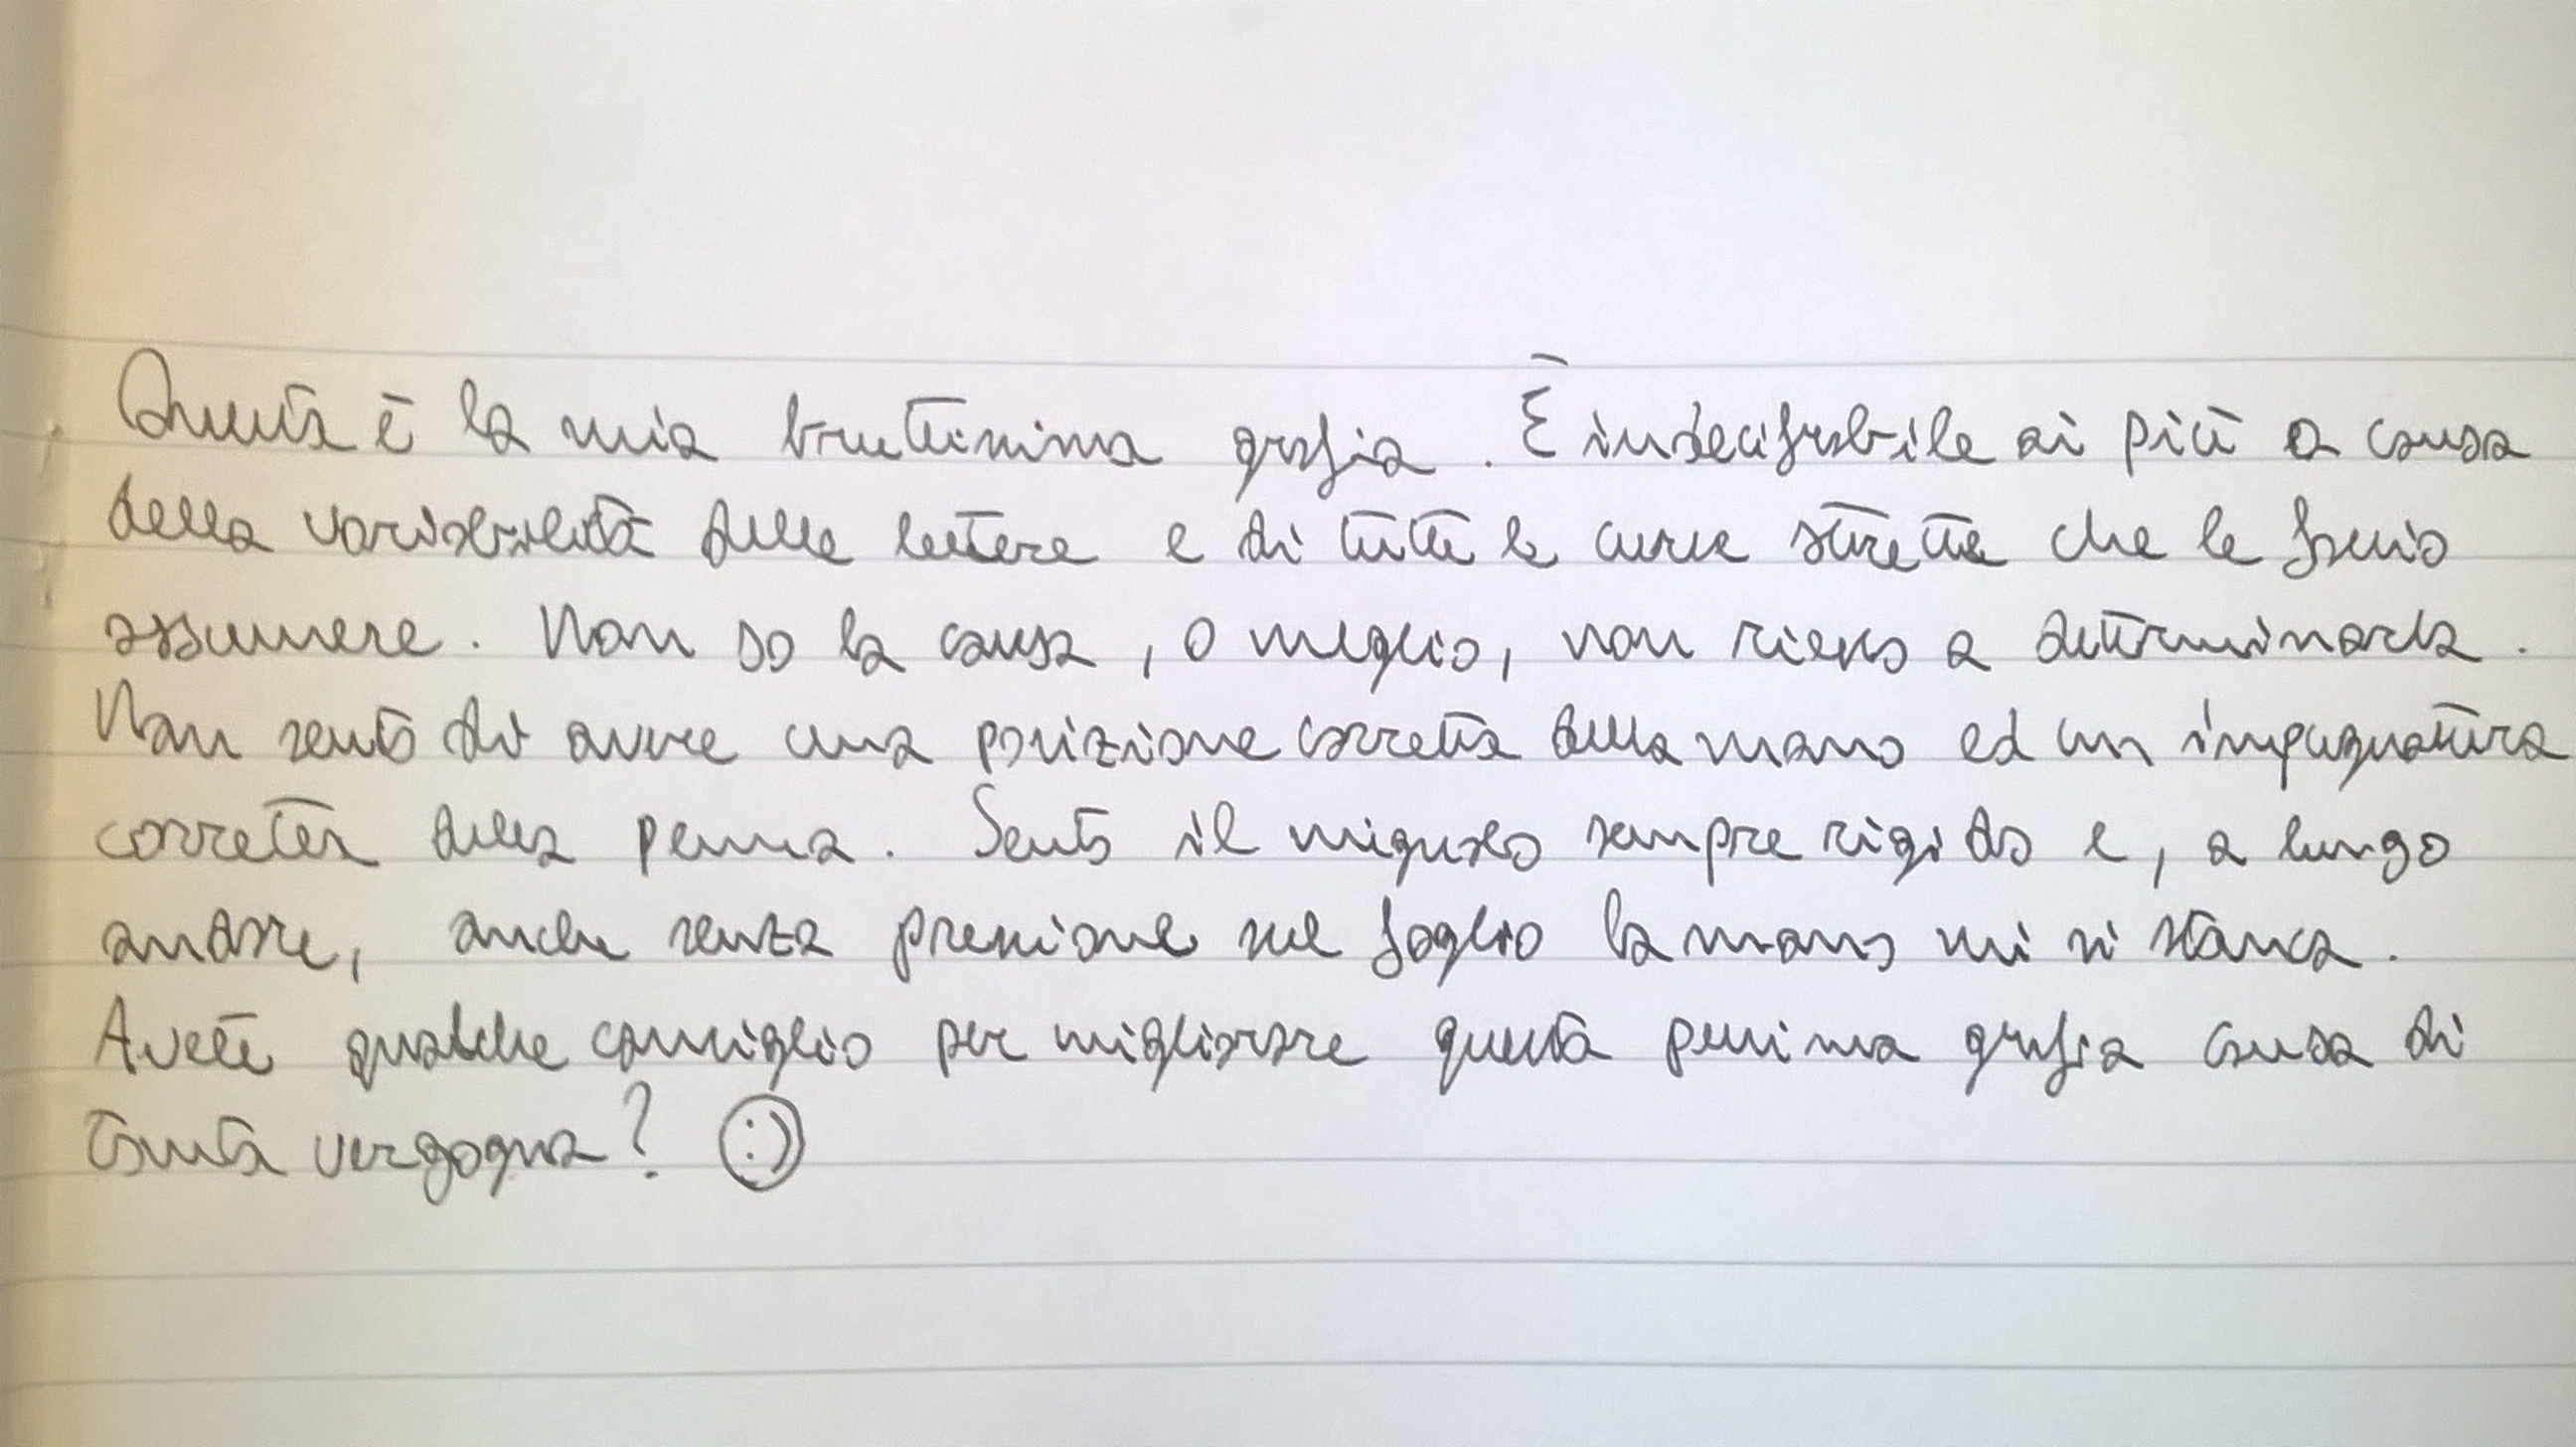 Questa è la mia bruttissima grafia. È indecifrabile ai più a causa
della variabilità delle lettere e di tutte le curve strette che le faccio
assumere. Non so la causa, o meglio, non riesco a determinarla.
Non sento di avere una posizione corretta della mano ed un impugnatura
corretta della penna. Sento il mignolo sempre rigido e, a lungo
andare, anche senza pressione sul foglio la mano mi si stanca.
Avete qualche consiglio per migliorare questa pessima grafia causa di
tanta vergogna? :)